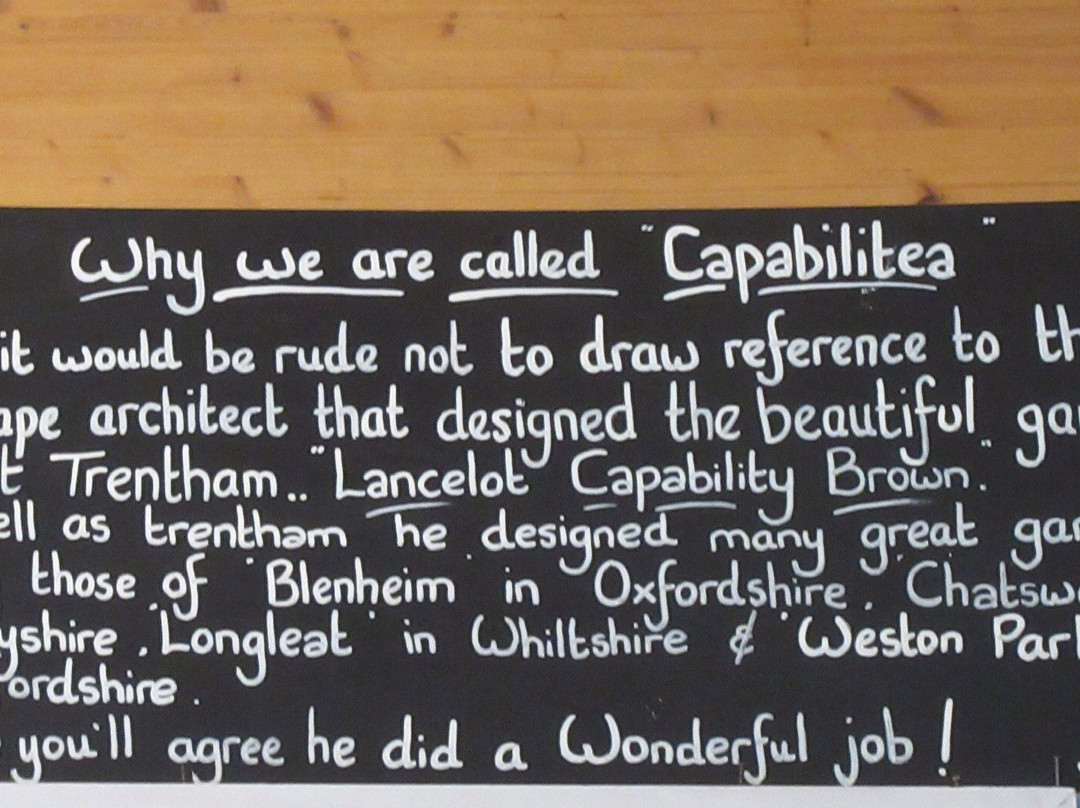 Why we are called "Capabilitea"
it would be rude not to draw reference to th
ape architect that designed the beautiful gar
t Trentham.. "Lancelot Capability Brown."
ell as trentham he designed many great gar
those of 'Blenheim' in Oxfordshire. 'Chatswo
yshire. 'Longleat' in Whiltshire & 'Weston Park
ordshire.
you'll agree he did a Wonderful job!